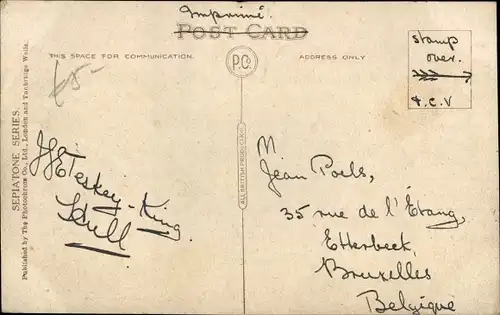 Imprimé.
POST CARD
THIS SPACE FOR COMMUNICATION.
ADDRESS ONLY
P.Co
stamp
over.
T.C.V
65-
SEPIATONE SERIES.
Published by The Photochrom Co., Ltd., London and Tunbridge Wells.
ALL BRITISH PRODUCTION
Teskey-King.
Hull
M
Jean Poels,
35 rue de l'Étang,
Etterbeck
Bruxelles
Belgique